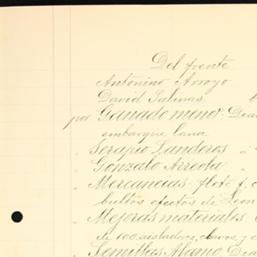 Del frente
Antonino Arroyo
David Salinas
por Ganado menor:
embarque lana
" Serapio Landeros
" Gonzalo Arreola
" Mercancias: flete f. c.
bultos efectos de Leon
" Mejoras materiales.
de 100 aisladores, clavos y
" Semillas Alamo,